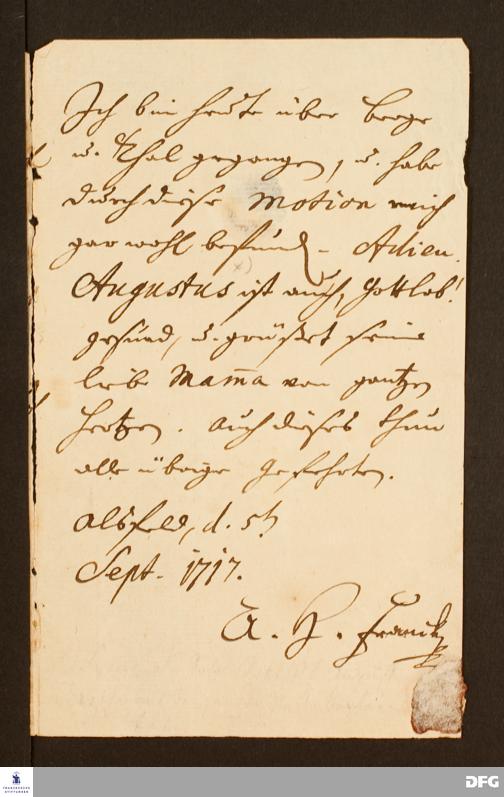 Ich bin heute über berge
u. Thal gegangen, u. habe
durch diese Motion mich
gar wohl befund. Adieu.
Augustus ist auch, Gottlob!
gesund, u. grüßet seine
liebe Mama von gantzen
Hertzen. Auch dieses thun
alle übrige Gefehrten.
Alsfeld, d. 5t.
Sept. 1717.
A. H. Franck
FRANCKESCHE
STIFTUNGEN
DFG